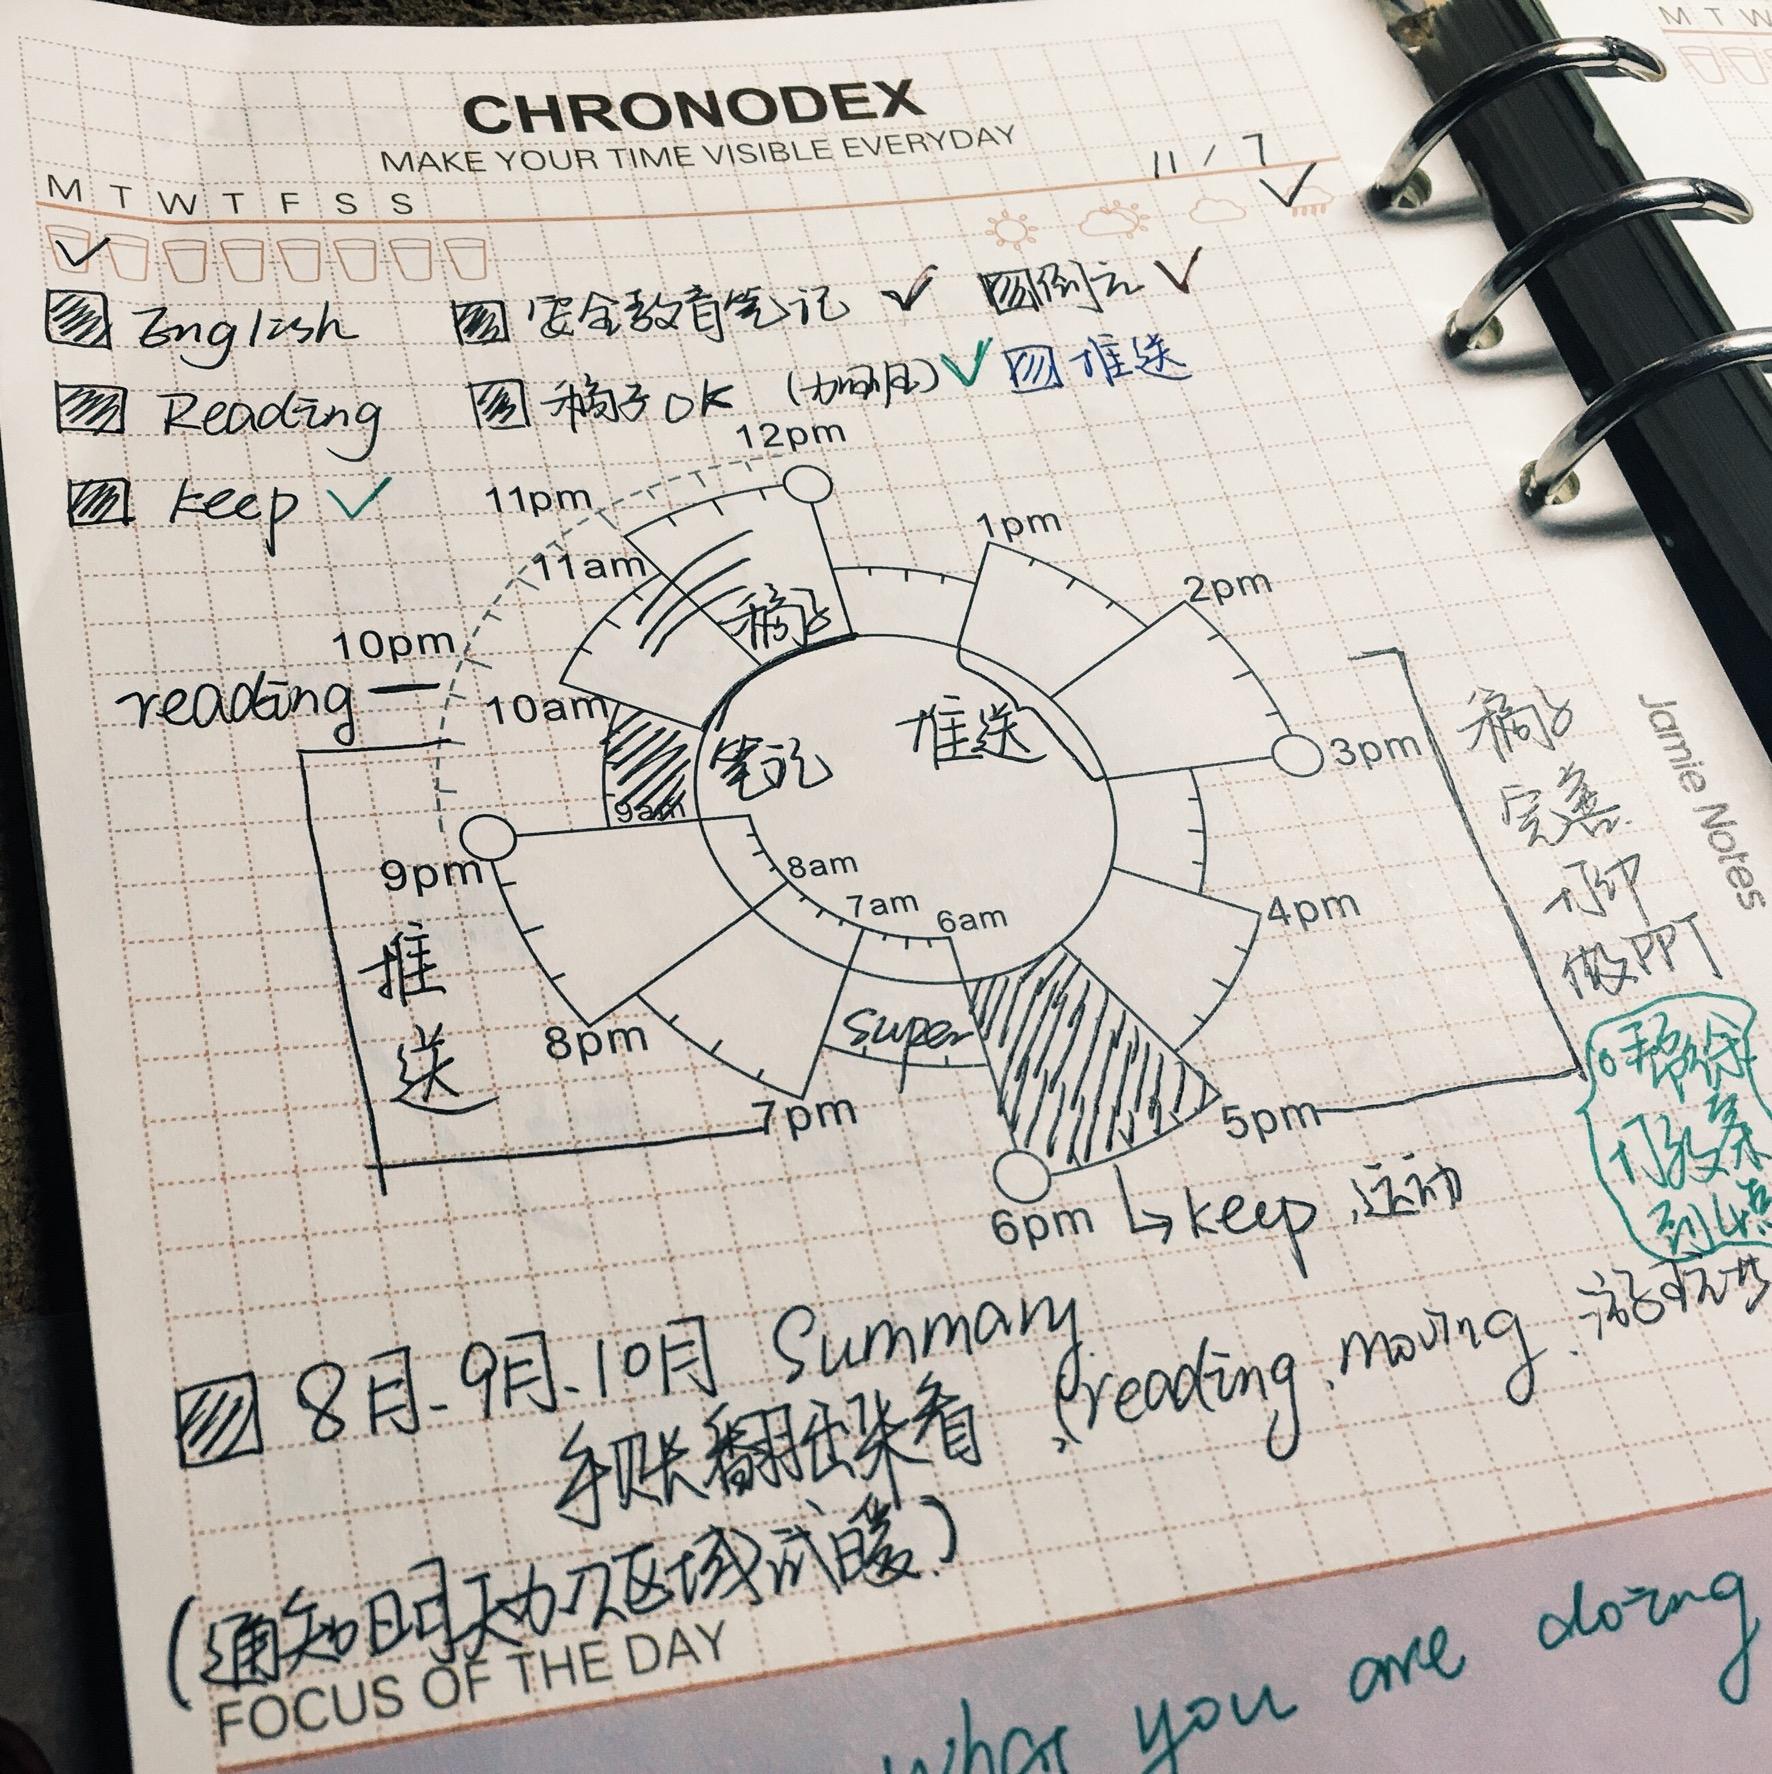 CHRONODEX
MAKE YOUR TIME VISIBLE EVERYDAY
11 / 7
M T W T F S S
English
安全教育笔记
倒立
Reading
稿子OK
推送
keep
12pm
11pm
1pm
11am
2pm
稿子
10pm
reading
10am
笔记
推送
3pm
稿子
完善
打印
做PPT
Jamie Notes
9am
9pm
8am
7am
6am
4pm
推
送
8pm
super
7pm
5pm
6pm
keep 运动
到4点
8月.9月.10月 Summary
手账翻出来看
(reading, moving,
FOCUS OF THE DAY
what you are doing
M T W